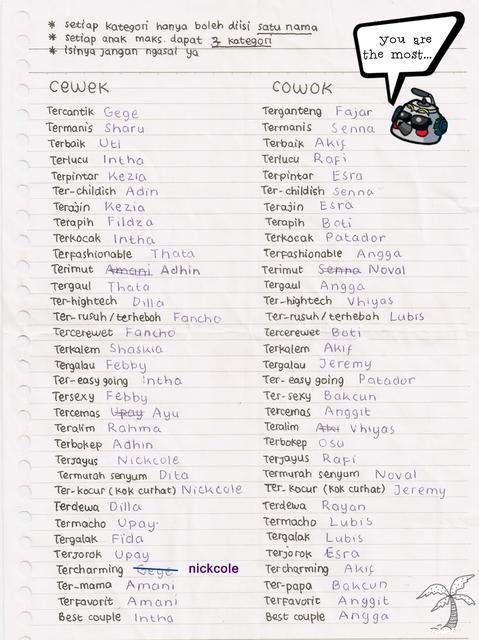 * setiap kategori hanya boleh diisi satu nama
* setiap anak maks. dapat 3 kategori
* isinya jangan ngasal ya
you are
the most...
cewek
Tercantik Gege
Termanis Sharu
Terbaik Uti
Terlucu Intha
Terpintar Kezia
Ter-childish Adin
Terajin Kezia
Terapih Fildza
Terkocak Intha
Terpashionable Thata
Terimut Amani Adhin
Tergaul Thata
Ter-hightech Dilla
Ter-rusuh/terheboh Fancho
Tercerewet Fancho
Terkalem Shaskia
Tergalau Febby
Ter-easy going Intha
Tersexy Febby
Tercemas Upay Ayu
Teralim Rahma
Terbokep Adhin
Terjayus Nickcole
Termurah senyum Dita
Ter-kocur (kok curhat) Nickcole
Terdewa Dilla
Termacho Upay
Tergalak Fida
Terjorok Upay
Tercharming Gege nickcole
Ter-mama Amani
Terfavorit Amani
Best couple Intha
cowok
Terganteng Fajar
Termanis Senna
Terbaik Akif
Terlucu Rafi
Terpintar Esra
Ter-childish Senna
Terajin Esra
Terapih Boti
Terkocak Patador
Terpashionable Angga
Terimut Senna Noval
Tergaul Angga
Ter-hightech Vhiyas
Ter-rusuh/terheboh Lubis
Tercerewet Boti
Terkalem Akif
Tergalau Jeremy
Ter-easy going Patador
Ter-sexy Bakcun
Tercemas Anggit
Teralim Vhiyas
Terbokep Osu
Terjayus Rafi
Termurah senyum Noval
Ter-kocur (kok curhat) Jeremy
Terdewa Rayan
Termacho Lubis
Tergalak Lubis
Terjorok Esra
Tercharming Akif
Ter-papa Bakcun
Terfavorit Anggit
Best couple Angga